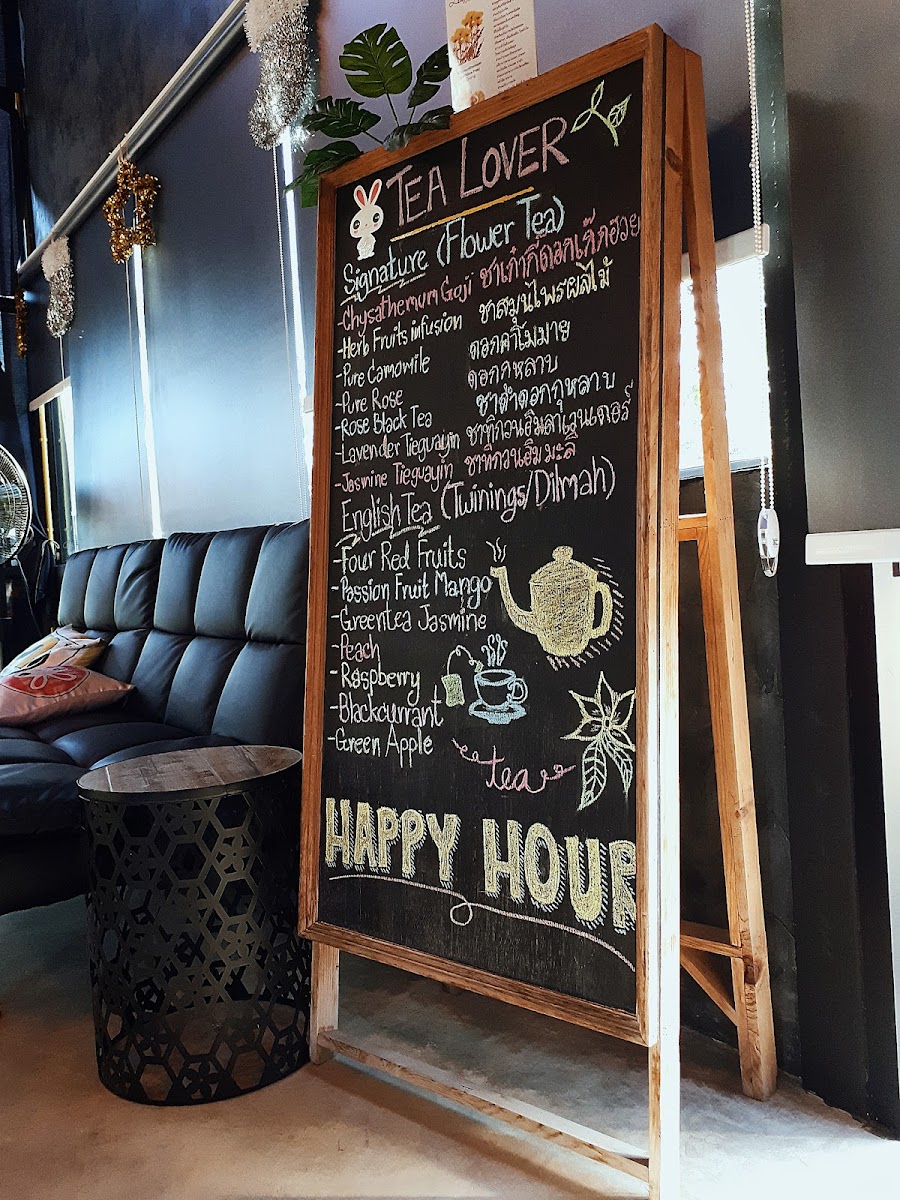 TEA LOVER
Signature (Flower Tea)
-Chysathemum Goji ชาเก๋ากี้ดอกเก๊กฮวย
-Herb Fruits infusion ชาสมุนไพรผลไม้
-Pure Camomile ดอกคาโมมาย
-Pure Rose ดอกกุหลาบ
-Rose Black Tea ชาดำดอกกุหลาบ
-Lavender Tieguayin ชาทิกวนอิมลาเวนเดอร์
-Jasmine Tieguayin ชาทิกวนอิมมะลิ
English Tea (Twinings/Dilmah)
-Four Red Fruits
-Passion Fruit Mango
-Greentea Jasmine
-Peach
-Raspberry
-Blackcurrant
-Green Apple
tea
HAPPY HOUR